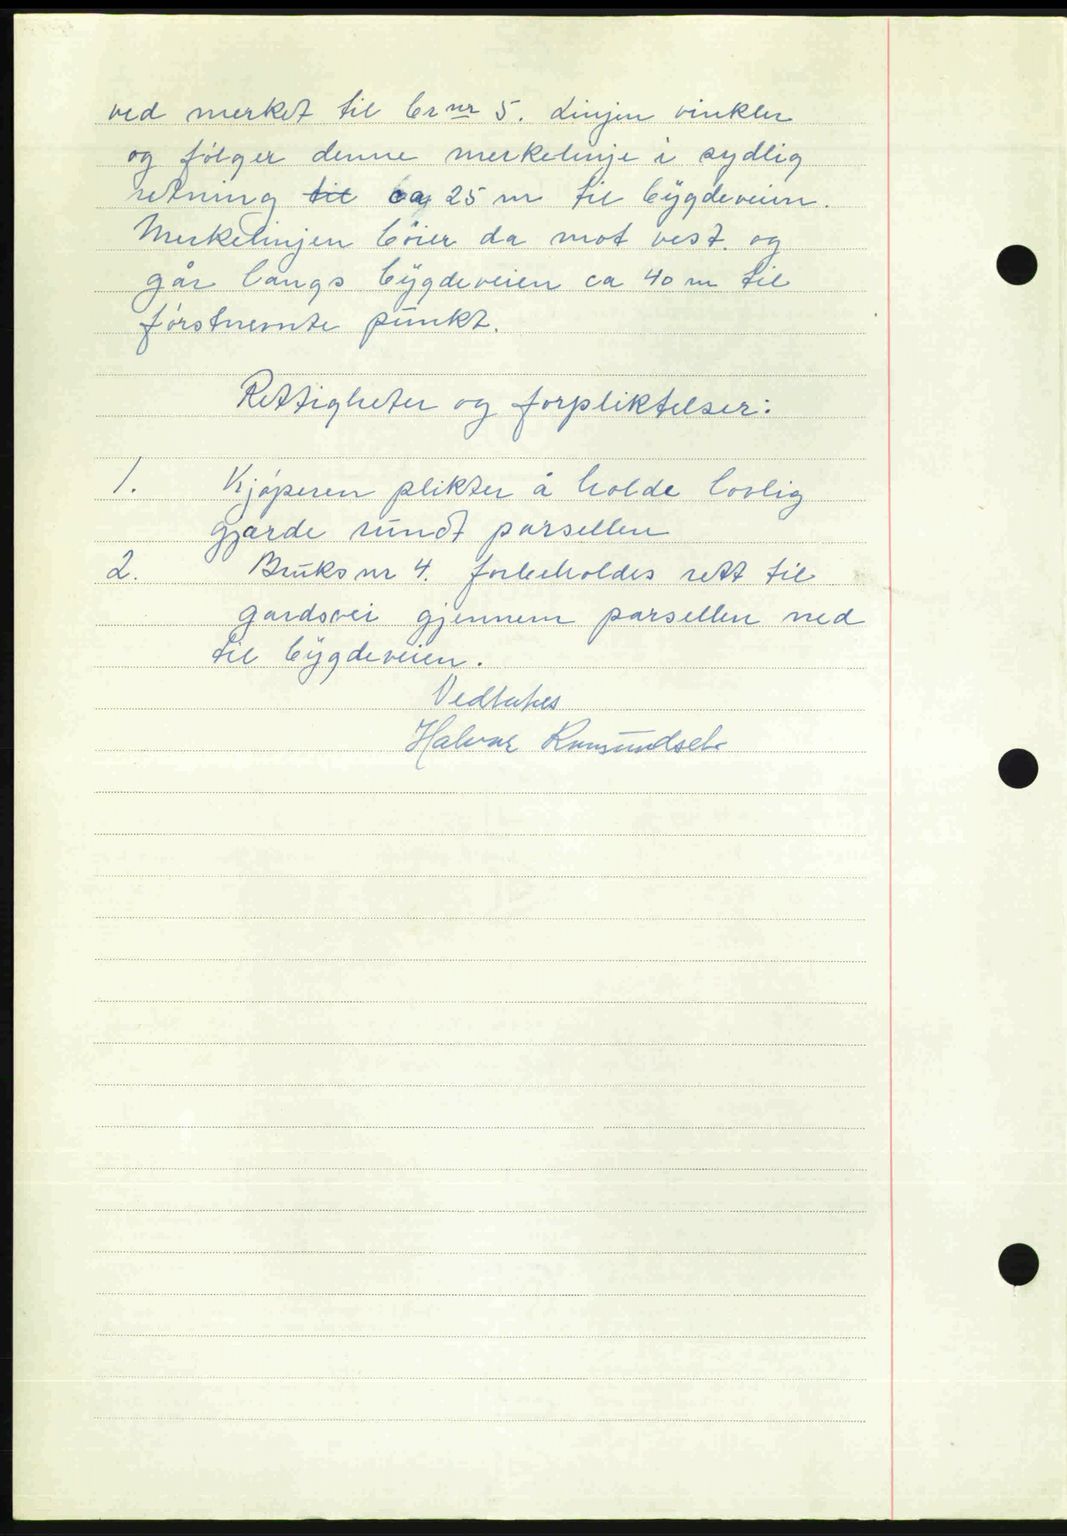 ved merket til br nr 5. Linjen vinkler
og følger denne merkelinje i sydlig
retning til ca 25 m til bygdeveien.
Merkelinjen bøier da mot vest. og
går langs bygdeveien ca 40 m til
førstnemte punkt.
Rettigheter og forpliktelser:
1. Kjøperen plikter å holde lovlig
gjærde rundt parsellen
2. Bruks nr 4. forbeholdes rett til
gardsvei gjennem parsellen ned
til bygdeveien.
Vedtakes
Halvor